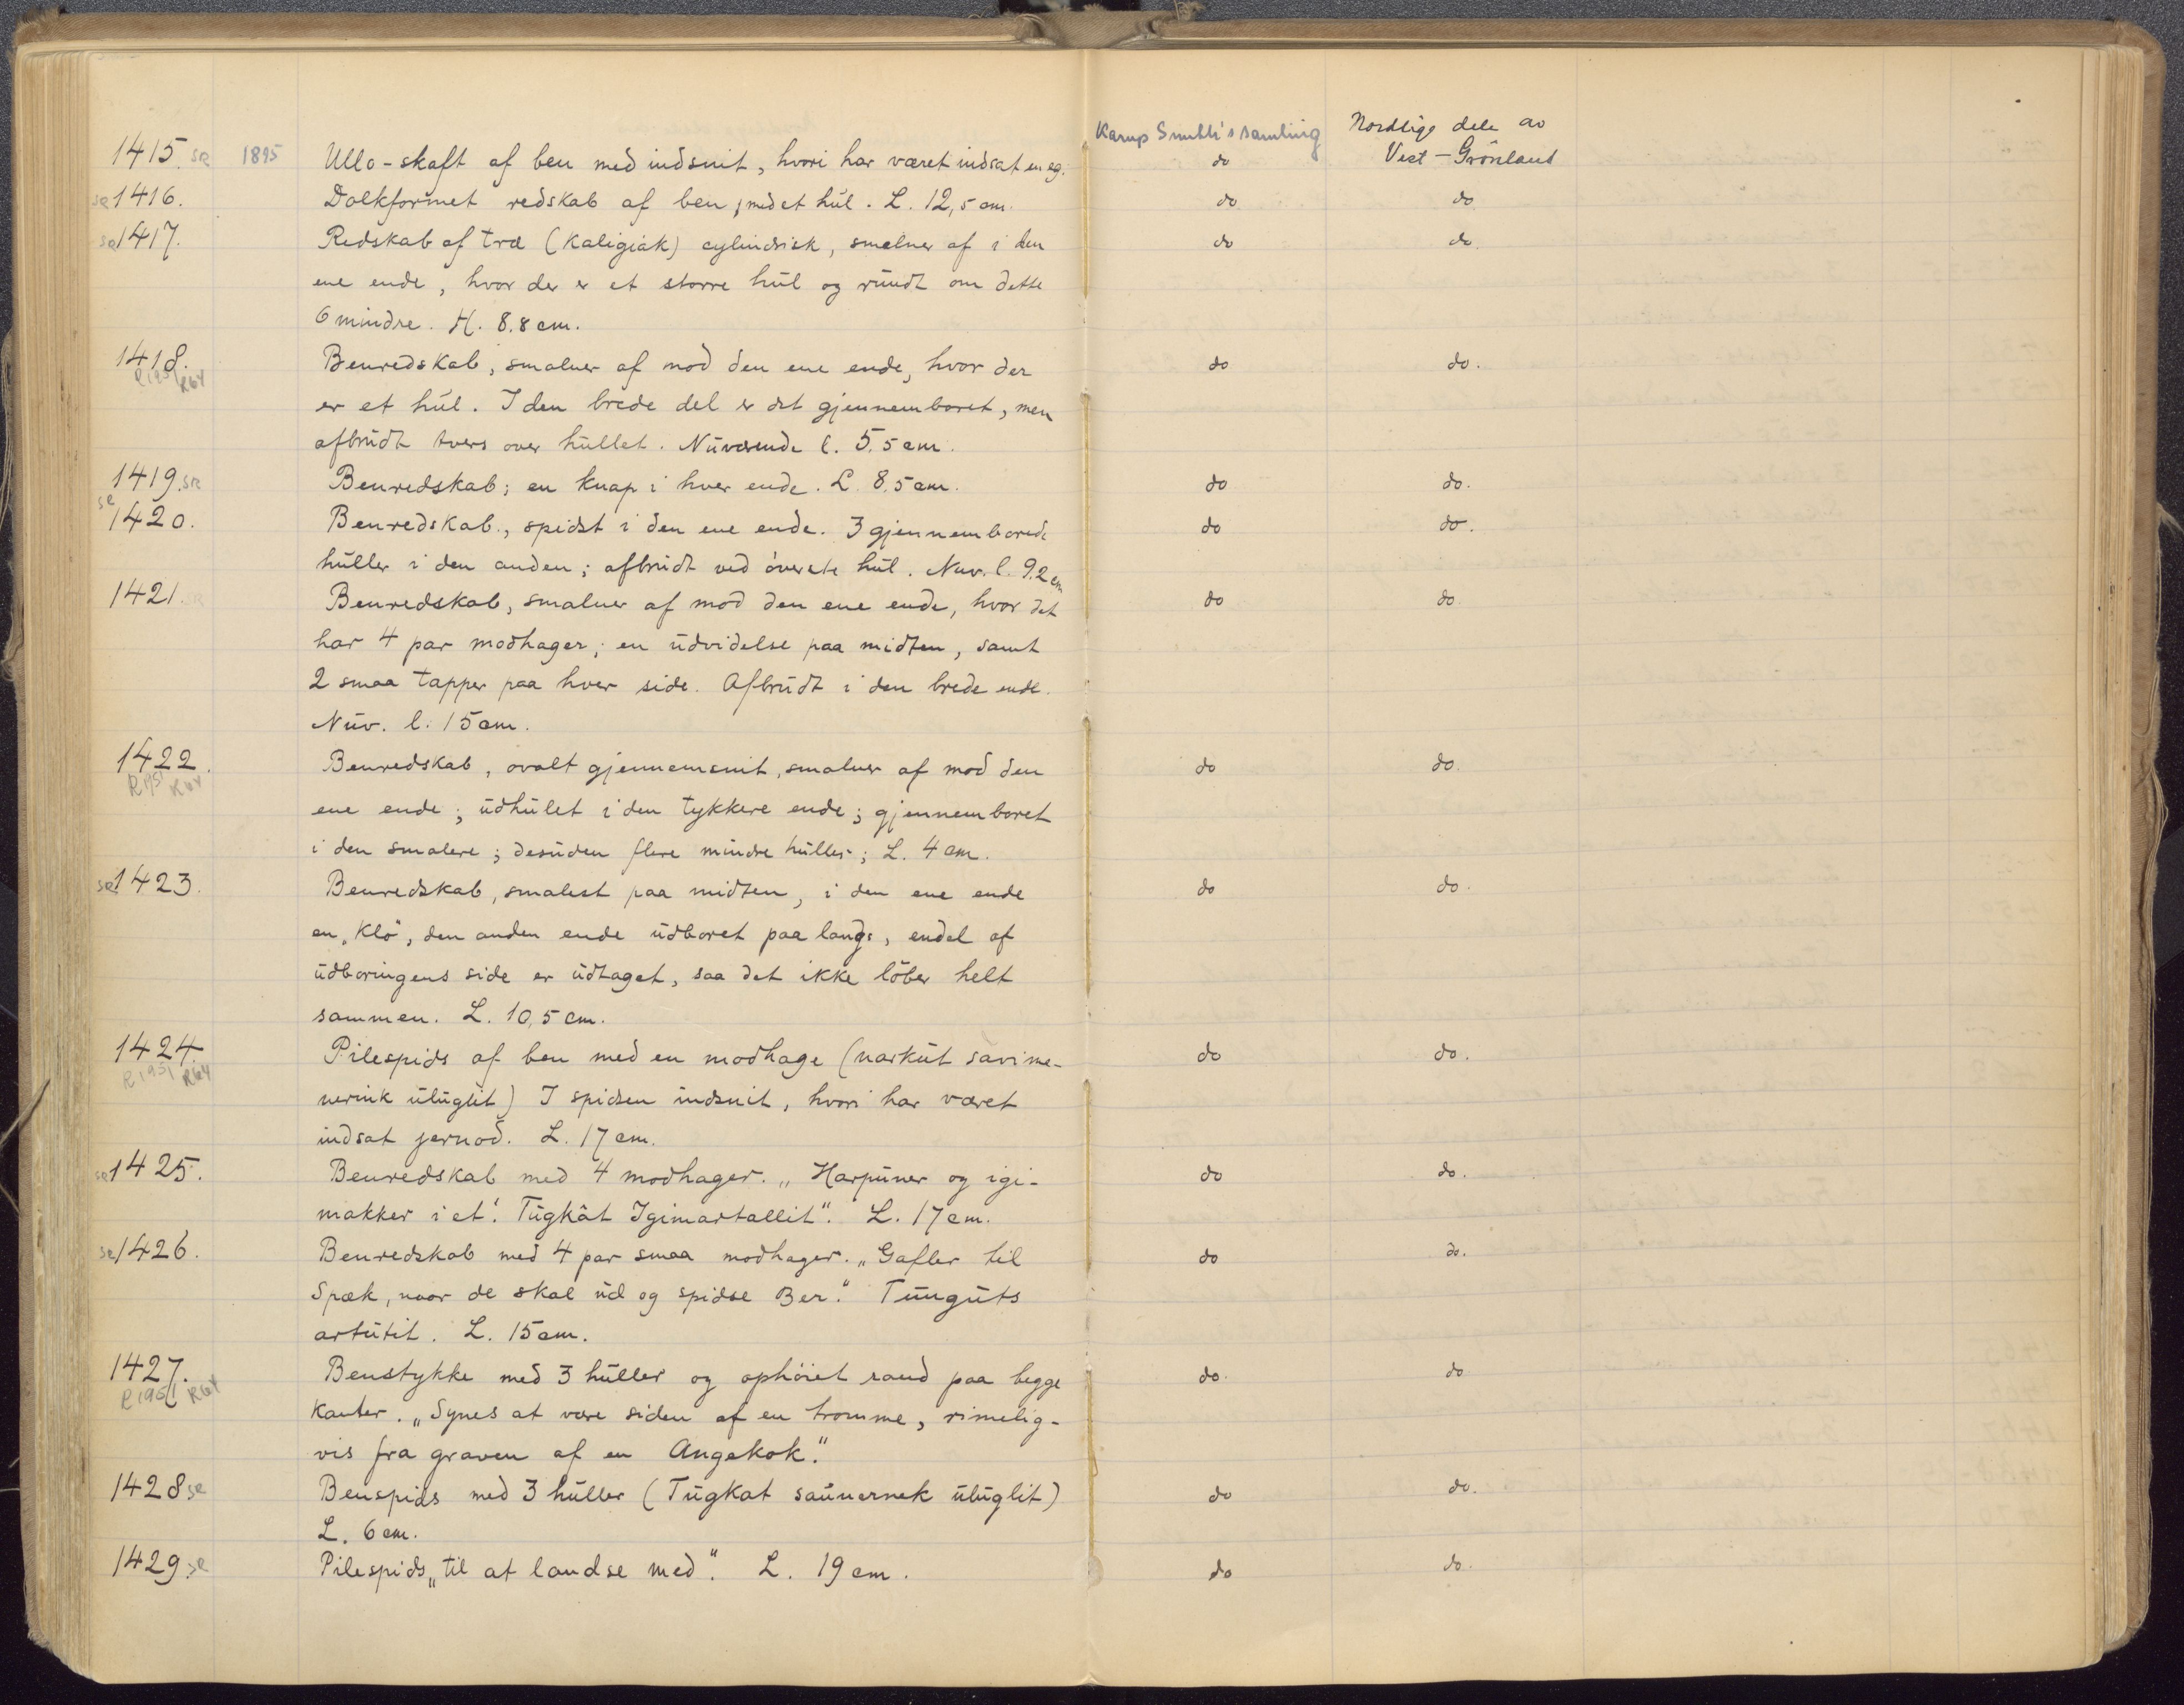 Karup Smith's samling Nordlige dele av
1415. SR 1895 Ullo-skaft af ben med indsnit, hvori har været indsat en eg. do Vest-Grönland
SR 1416. Dolkformet redskab af ben, med et hül. L. 12,5 cm. do do
SR 1417. Redskab af træ (Kaligiak) cylindrisk, smalner af i den do do.
ene ende, hvor der er et større hül og ründt om dette
6 mindre. H. 8.8 cm.
1418. Benredskab, smalner af mod den ene ende, hvor der do do.
R1951 R64
er et hül. I den brede del er det gjennemboret, men
afbrüdt tvers over hüllet. Nüværende l. 5.5 cm.
1419. SR Benredskab; en knap i hver ende. L. 8,5 cm. do do.
SR 1420. Benredskab, spidst i den ene ende. 3 gjennemborede do do.
hüller i den anden; afbrüdt ved överste hül. Nuv. l. 9.2 cm
1421. SR Benredskab, smalner af mod den ene ende, hvor det do do.
har 4 par modhager; en üdvidelse paa midten, samt
2 smaa tapper paa hver side. Afbrüdt i den brede ende.
Nüv. l. 15 cm.
1422. Benredskab, ovalt gjennemsnit, smalner af mod den do do.
R1951 R64
ene ende; üdhület i den tykkere ende; gjennemboret
i den smalere; desüden flere mindre hüller; L. 4 cm.
SR 1423. Benredskab, smalest paa midten, i den ene ende do do.
en „Klö“, den anden ende üdboret paa langs, endel af
üdboringens side er üdtaget, saa det ikke löber helt
sammen. L. 10,5 cm.
1424. Pilespids af ben med en modhage (narküt savime- do do.
R1951 R64
nernik ülüglit) I spidsen indsnit, hvori har været
indsat jernod. L. 17 cm.
SR 1425. Benredskab med 4 modhager. „Harpüner og igi- do do.
makker i et“. Tügkât Igimartallit“. L. 17 cm.
SR 1426. Benredskab med 4 par smaa modhager. „Gafler til do do.
Spæk, naar de skal üd og spidse Ber.“ Tüngüts
artütit. L. 15 cm.
1427. Benstykke med 3 hüller og ophöiet rand paa begge do. do
R1951 R64
Kanter. „Synes at være siden af en tromme, rimelig-
vis fra graven af en Angekok.“
1428 SR Benspids med 3 hüller (Tügkat saünernek ülüglit) do do.
L. 6 cm.
1429. SR Pilespids „til at landse med“. L. 19 cm. do do.